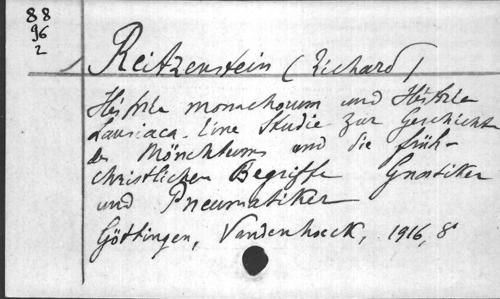 88
96
2
Reitzenstein (Richard)
Historia monachorum und Historia
Lausiaca. Eine Studie zur Geschichte
des Mönchtums und die früh-
christlichen Begriffe Gnostiker
und Pneumatiker
Göttingen, Vandenhoeck, 1916, 8°